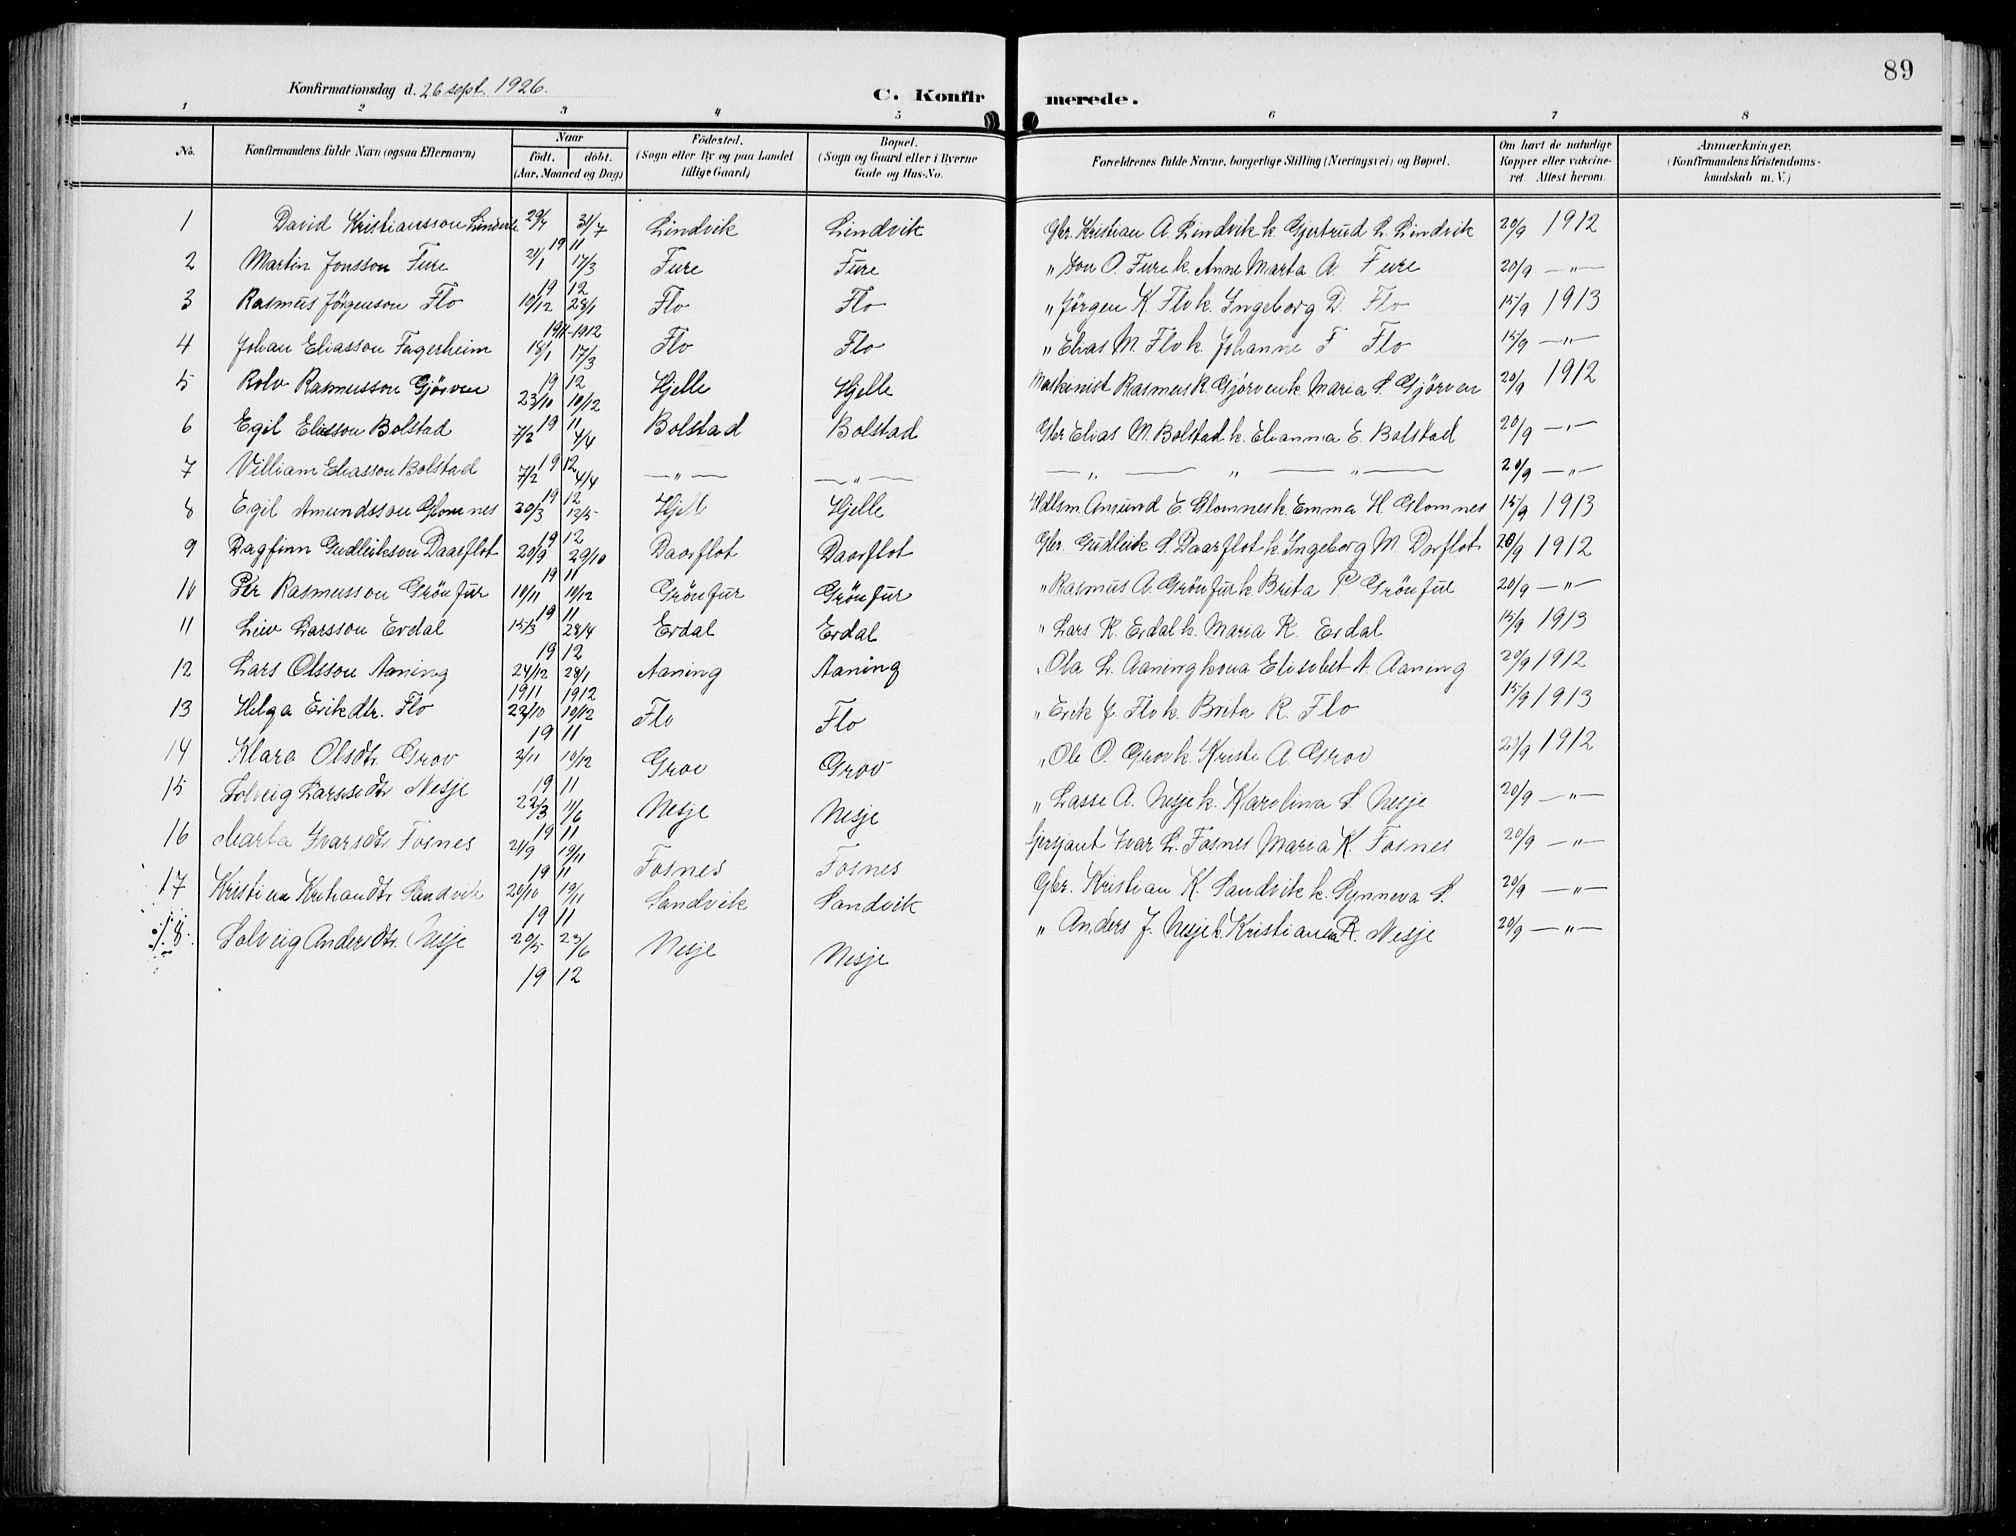 89
Konfirmationsdag d. 26 sept. 1926.
C. Konfirmerede.
1 2 3 4 5 6 7 8
No. Konfirmandens fulde Navn (ogsaa Efternavn) Naar födt. döbt. (Aar, Maaned og Dag) Födested. (Sogn eller By og paa Landet tillige Gaard) Bopæl. (Sogn og Gaard eller i Byerne Gade og Hus-No. Forældrenes fulde Navne, borgerlige Stilling (Næringsvei) og Bopæl. Om havt de naturlige Kopper eller vakcineret. Attest herom. Anmærkninger. (Konfirmandens Kristendomskundskab m. V.)
1 David Kristiansson 29/7 31/7 19 11 Lindvik Lindvik Gbr. Kristian A. Lindvik k. Gjertrud L Lindvik 20/9 1912
2 Martin Jonsson Fure 21/1 17/3 19 12 Fure Fure " Jon O. Fure k. Anne Marta A. Fure 20/9 — " —
3 Rasmus Jörgenson Flo 10/12 28/1 1911-1912 Flo Flo " Jörgen K Flo k. Ingeborg D. Flo 15/9 1913
4 Johan Eliasson Fagerheim 18/1 17/3 19 12 Flo Flo " Elias M. Flo k. Johanne F Flo 15/9 — " —
5 Rolv Rasmusson Gjörven 23/10 10/12 19 11 Hjelle Hjelle Maskinist Rasmus R. Gjörven k. Maria S. Gjörven 20/9 1912
6 Egil Eliasson Bolstad 7/2 4/4 19 12 Bolstad Bolstad Gbr Elias M. Bolstad k. Elianna E. Bolstad 20/9 — " —
7 Villiam Eliasson Bolstad 7/2 4/4 19 12 — " — — " — — " — " — " — 20/9 — " —
8 Egil Amundsson Glomnes 20/3 12/5 19 12 Hjelle Hjelle Hdlsm. Amund E. Glomnes k. Emma H Glomnes 15/9 1913
9 Dagfinn Gudleikson Daarflot 20/9 29/10 19 11 Daarflot Daarflot Gbr. Gudleik S. Daarflot k. Ingeborg M. Dorflot 20/9 1912
10 Per Rasmusson Grönfur 10/11 10/12 19 11 Grönfur Grönfur " Rasmus A. Grönfur k Brita P. Grönfur 20/9 — " —
11 Leiv Larsson Erdal 15/3 28/4 19 12 Erdal Erdal " Lars K. Erdal k. Maria K. Erdal 15/9 1913
12 Lars Olsson Aaning 24/12 28/1 1911 1912 Aaning Aaning " Ola L. Aaning kona Elisabet A. Aaning 20/9 1912
13 Helga Erikdtr. Flo 22/10 10/12 19 11 Flo Flo " Erik J. Flo k. Brita R. Flo 15/9 1913
14 Klara Olsdtr. Grov 2/11 10/12 19 11 Grov Grov " Ole O. Grov k. Kristi A. Grov 20/9 1912
15 Solveig Larsdtr Nesje 22/3 11/6 19 11 Nesje Nesje " Lasse A. Nesje k. Karolina S. Nesje 20/9 — " —
16 Marta Ivarsdtr Fosnes 21/9 19/11 19 11 Fosnes Fosnes Sersjant Ivar L. Fosnes Maria K Fosnes 20/9 — " —
17 Kristina Sandvik 20/10 19/11 19 11 Sandvik Sandvik Gbr. Kristian K. Sandvik k. Synneva S. 20/9 — " —
18. Solveig Andersdtr. Nesje 20/5 23/6 19 12 Nesje Nesje " Anders J. Nesje k. Kristianna R. Nesje 20/9 — " —